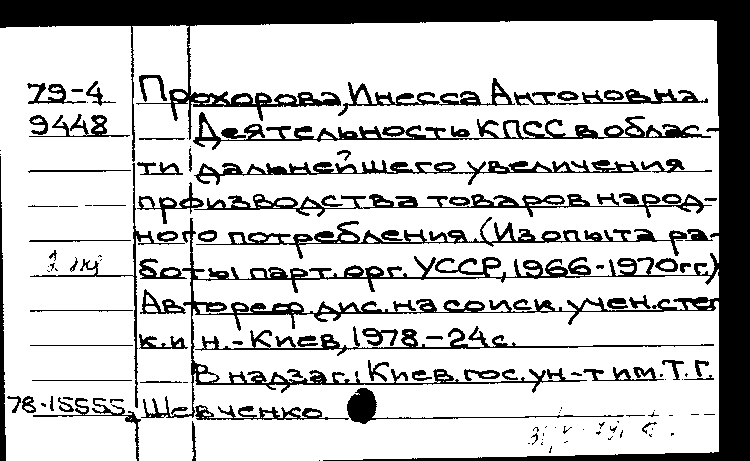 79-4 Прохорова, Инесса Антоновна.
9448 Деятельность КПСС в облас-
ти дальнейшего увеличения
производства товаров народ-
ного потребления. (Из опыта ра-
боты парт. орг. УССР, 1966-1970гг.)
Автореф. дис. на соиск. учен. степ
к. и н. - Киев, 1978. - 24 с.
В надзаг.: Киев. гос. ун-т им. Т. Г.
78-15555а Шевченко.